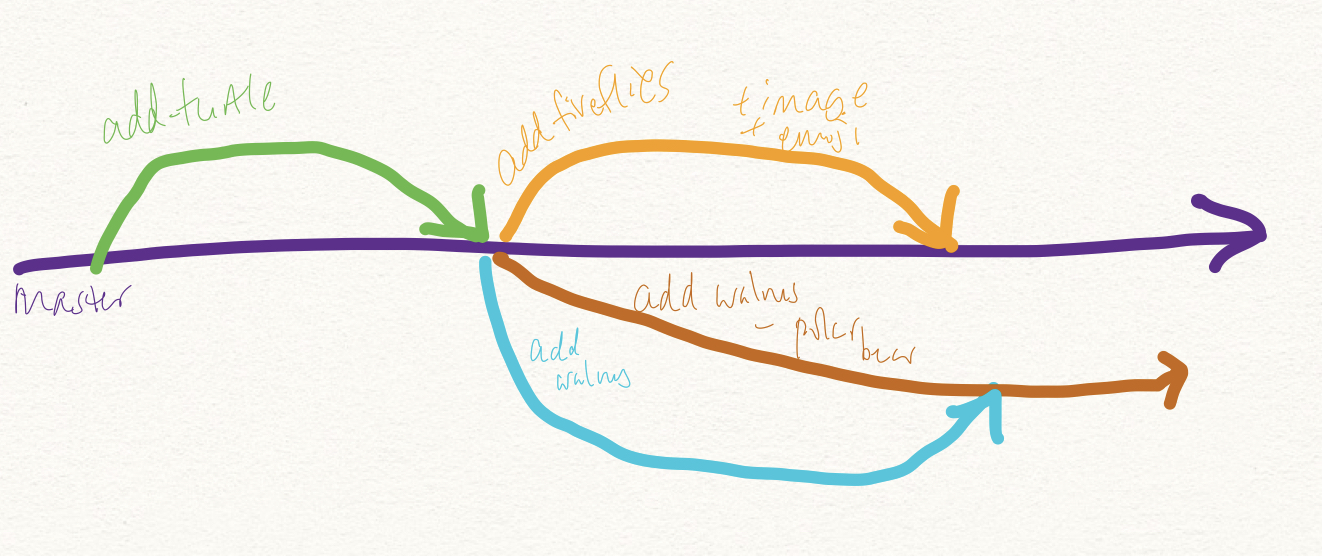 add-turtle
add-fireflies
+image
+ emoji
master
add walrus
- polar
bear
add
walrus